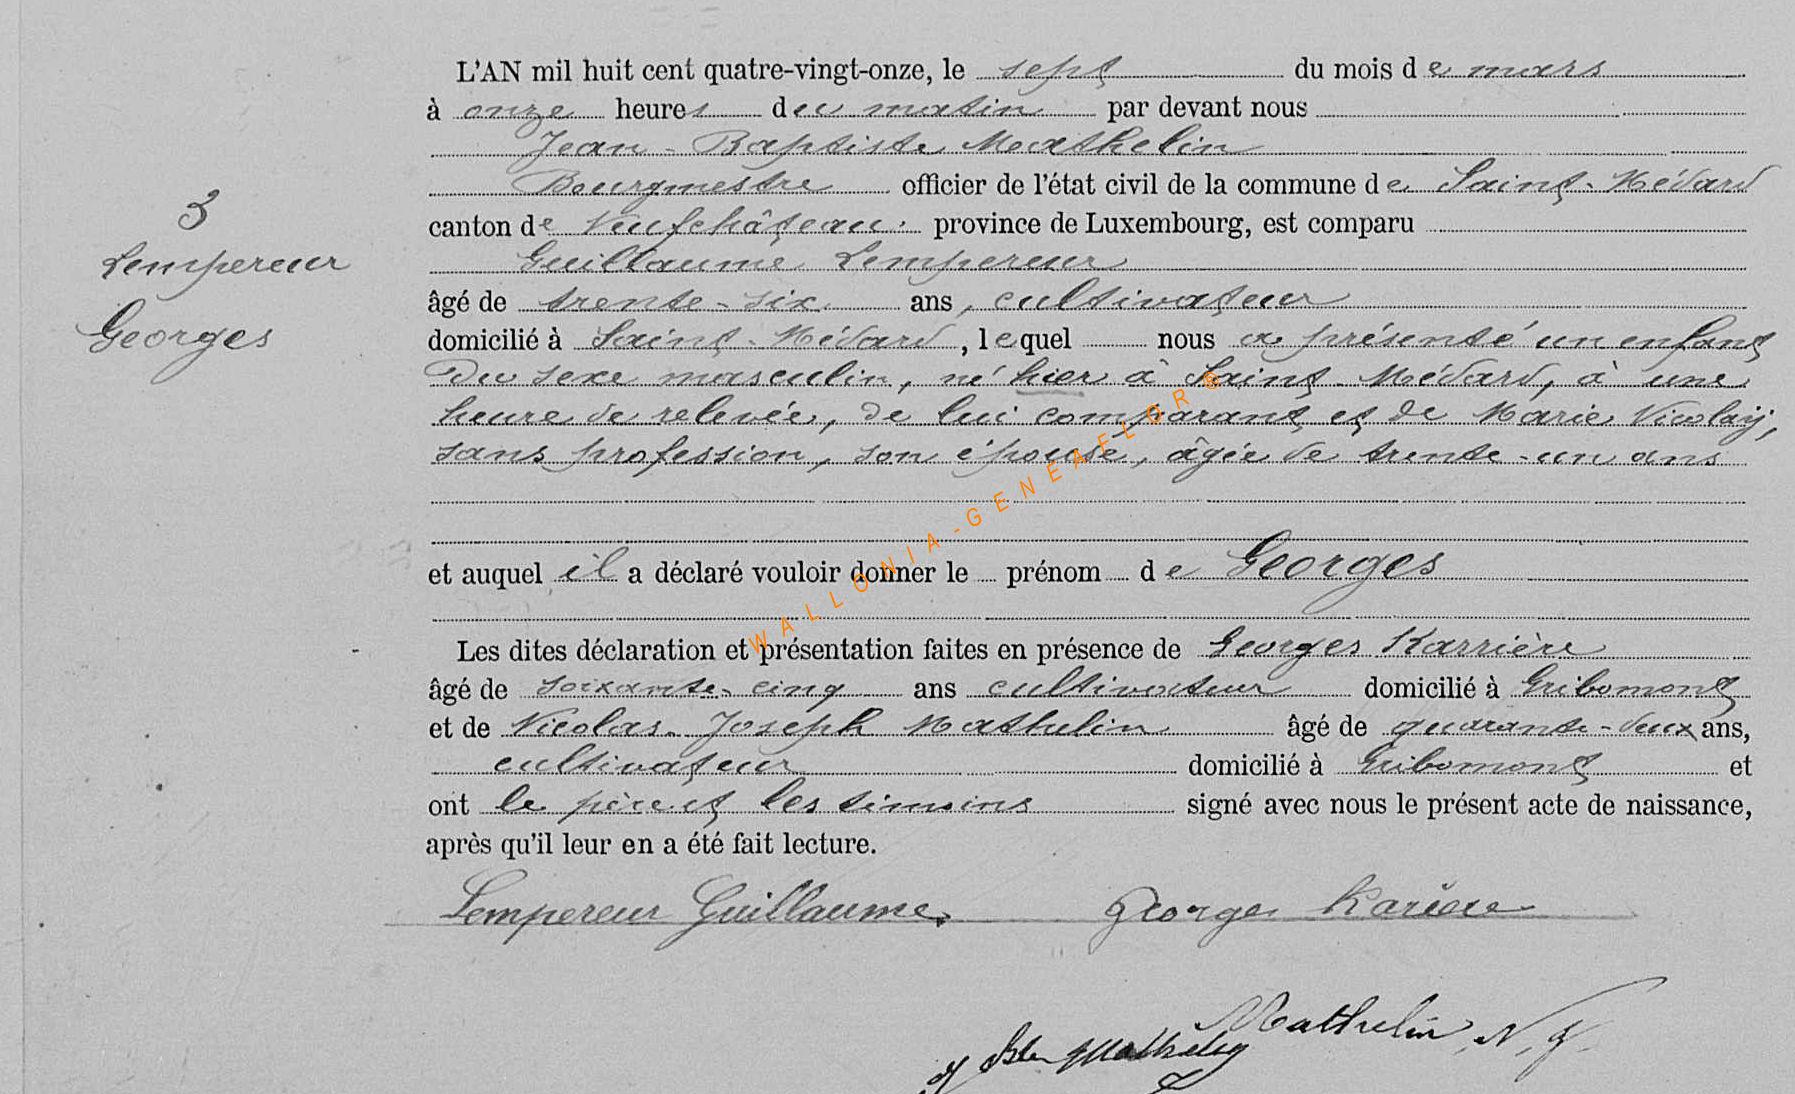 L'AN mil huit cent quatre-vingt-onze, le sept du mois de mars
à onze heures du matin par devant nous
Jean-Baptiste Mathelin
Bourgmestre officier de l'état civil de la commune de Saint-Médard
canton de Neufchâteau province de Luxembourg, est comparu
Guillaume Lempereur
âgé de trente-six ans, cultivateur
domicilié à Saint-Médard, lequel nous a présenté un enfant
du sexe masculin, né hier à Saint-Médard, à une
heure de relevée, de lui comparant et de Marie Nicolaij,
sans profession, son épouse, âgée de trente-un ans
et auquel il a déclaré vouloir donner le prénom de Georges
Les dites déclaration et présentation faites en présence de Georges Karrière
âgé de soixante-cinq ans cultivateur domicilié à Gribomont
et de Nicolas-Joseph Mathelin âgé de quarante-deux ans,
cultivateur domicilié à Gribomont et
ont le père et les témoins signé avec nous le présent acte de naissance,
après qu'il leur en a été fait lecture.
3
Lempereur
Georges
Lempereur Guillaume
Georges Karière
Mathelin, N. J.
Mathelin
WALLONIA-GENEAFLOR®